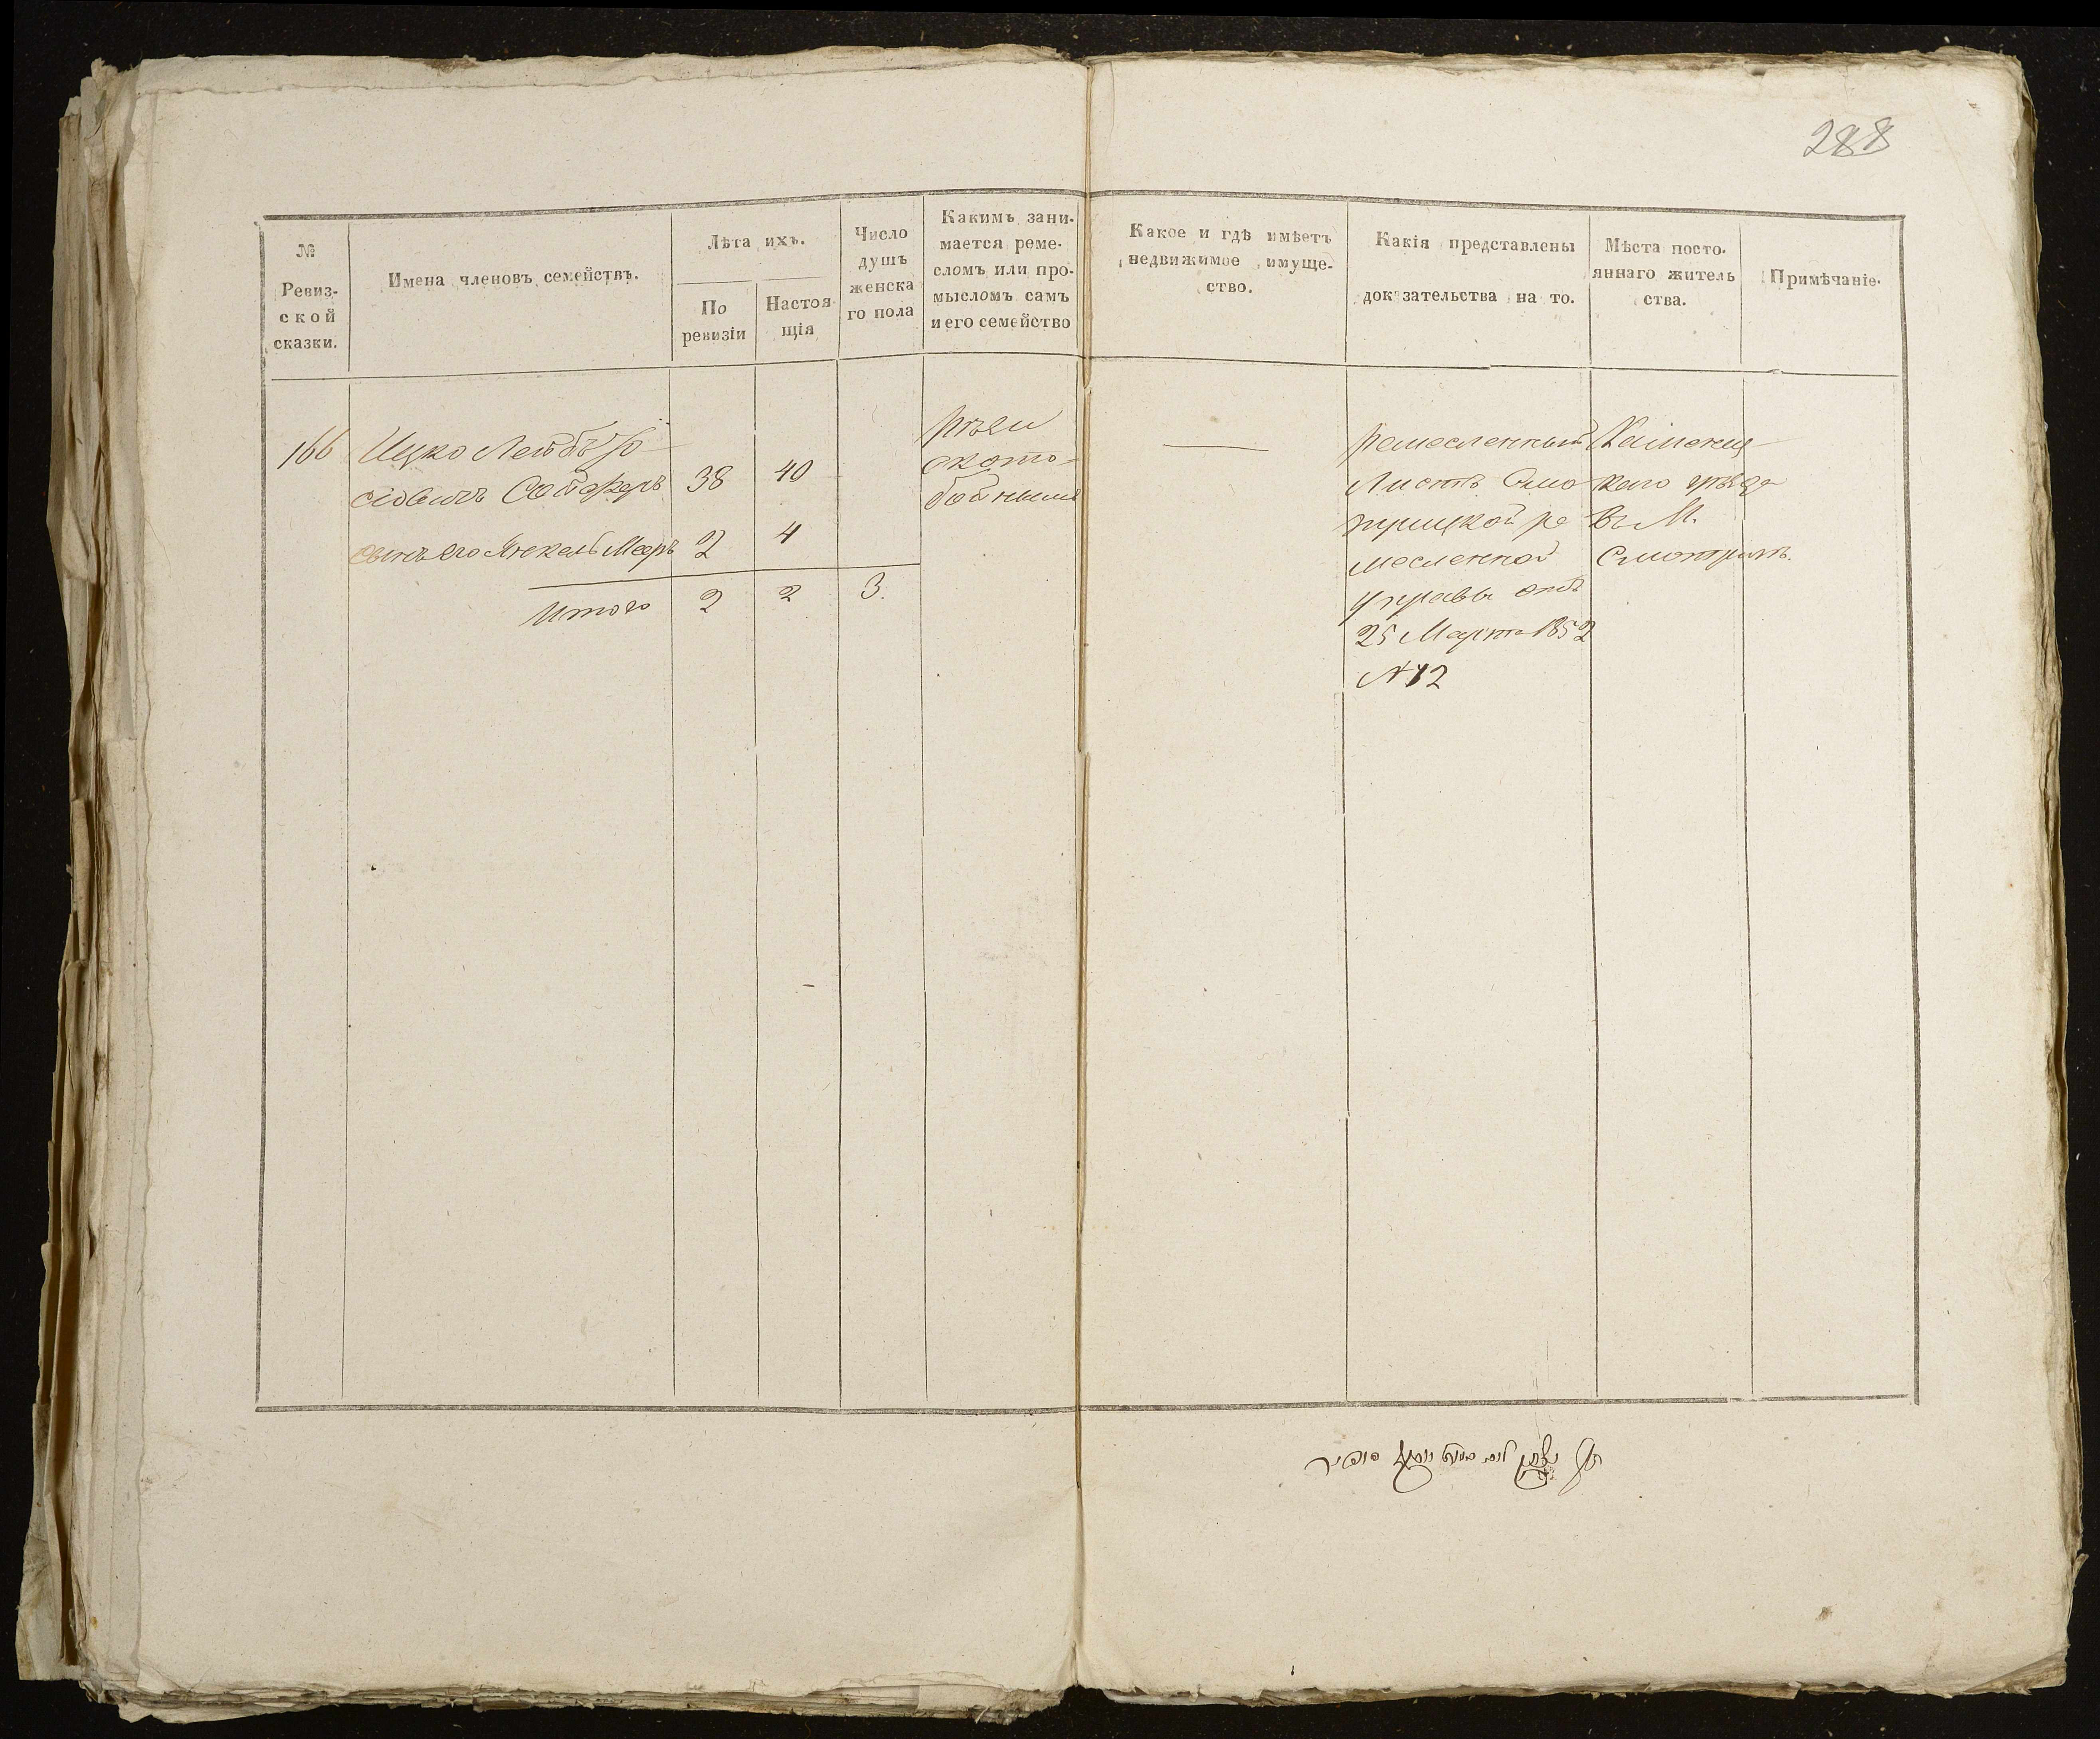 288
№
Ревиз-
ской
сказки.
Имена членовъ семействъ.
Лѣта ихъ.
По
ревизіи
Настоя
щія
Число
душъ
женска
го пола
Какимъ зани-
мается реме-
сломъ или про-
мысломъ самъ
и его семейство
Какое и гдѣ имѣетъ
недвижимое имуще-
ство.
Какія представлены
доказательства на то.
Мѣста посто-
яннаго житель
ства.
Примѣчаніе.
166
Ицко Лейбъ Іо
сіовичъ Сойферъ 38 40
сынъ его Янкель Мееръ 2 4
Итого 2 2 3.
ското-
бойнымъ
ремесленный
Листъ Смо
трицкой ре
месленной
управы отъ
25 Марта 1852
№ 12
Каменец
каго уѣзда
въ М.
Смотричъ.